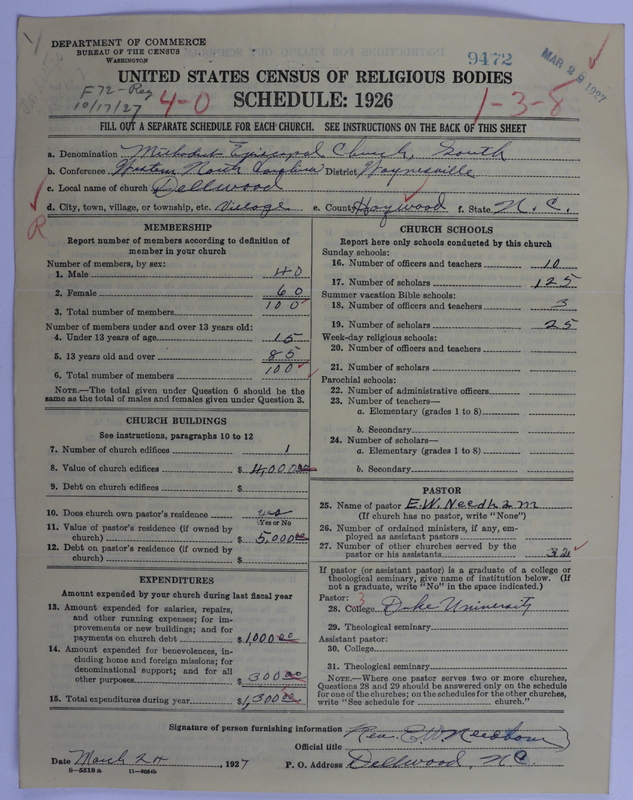 DEPARTMENT OF COMMERCE
BUREAU OF THE CENSUS
WASHINGTON
9472
MAR 29 1927
UNITED STATES CENSUS OF RELIGIOUS BODIES
F72-Reg
10/17/27
4-0
SCHEDULE: 1926
1-3-8
FILL OUT A SEPARATE SCHEDULE FOR EACH CHURCH. SEE INSTRUCTIONS ON THE BACK OF THIS SHEET
a. Denomination Methodist Episcopal Church, South
b. Conference Western North Carolina District Waynesville
c. Local name of church Dellwood
d. City, town, village, or township, etc. Village e. County Haywood f. State N. C.
R
MEMBERSHIP
Report number of members according to definition of
member in your church
Number of members, by sex:
1. Male 40
2. Female 60
3. Total number of members 100
Number of members under and over 13 years old:
4. Under 13 years of age 15
5. 13 years old and over 85
6. Total number of members 100
NOTE.—The total given under Question 6 should be the
same as the total of males and females given under Question 3.
CHURCH BUILDINGS
See instructions, paragraphs 10 to 12
7. Number of church edifices 1
8. Value of church edifices $ 4,000.00
9. Debt on church edifices $
10. Does church own pastor's residence yes
(Yes or No)
11. Value of pastor's residence (if owned by
church) $ 5,000.00
12. Debt on pastor's residence (if owned by
church) $
EXPENDITURES
Amount expended by your church during last fiscal year
13. Amount expended for salaries, repairs,
and other running expenses; for im-
provements or new buildings; and for
payments on church debt $ 1,000.00
14. Amount expended for benevolences, in-
cluding home and foreign missions; for
denominational support; and for all
other purposes $ 300.00
15. Total expenditures during year $ 1,300.00
CHURCH SCHOOLS
Report here only schools conducted by this church
Sunday schools:
16. Number of officers and teachers 10
17. Number of scholars 125
Summer vacation Bible schools:
18. Number of officers and teachers 3
19. Number of scholars 25
Week-day religious schools:
20. Number of officers and teachers
21. Number of scholars
Parochial schools:
22. Number of administrative officers
23. Number of teachers—
a. Elementary (grades 1 to 8)
b. Secondary
24. Number of scholars—
a. Elementary (grades 1 to 8)
b. Secondary
PASTOR
25. Name of pastor E. W. Needham
(If church has no pastor, write "None")
26. Number of ordained ministers, if any, em-
ployed as assistant pastors
27. Number of other churches served by the
pastor or his assistants
If pastor (or assistant pastor) is a graduate of a college or
theological seminary, give name of institution below. (If
not a graduate, write "No" in the space indicated.)
Pastor: 3
28. College Duke University
29. Theological seminary
Assistant pastor:
30. College
31. Theological seminary
NOTE.—Where one pastor serves two or more churches,
Questions 28 and 29 should be answered only on the schedule
for one of the churches; on the schedules for the other churches,
write "See schedule for church."
Signature of person furnishing information Rev. E. W. Needham
Official title
Date March 24, 1927 P. O. Address Dellwood, N.C.
8—5518a